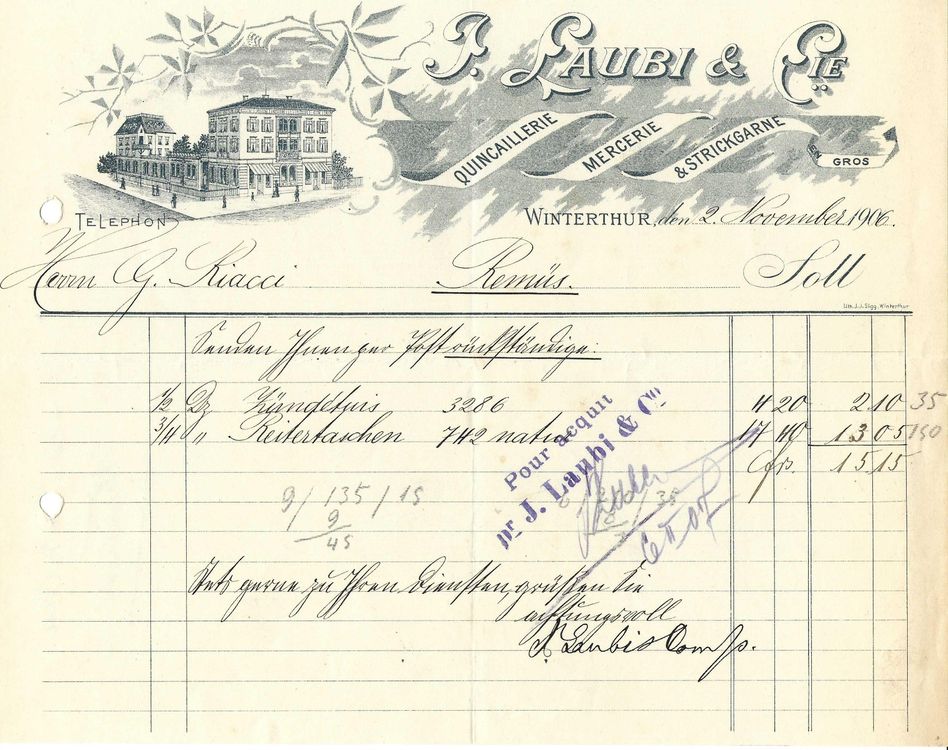 J. LAUBI & CIE
QUINCAILLERIE
MERCERIE
& STRICKGARNE
EN GROS
TELEPHON
WINTERTHUR, den 2. November 1906.
Herrn G. Riacci Remüs. Soll
Lith. J.J. Sigg, Winterthur
Senden Ihnen per Post rückständige:
1/2 Dz Zündetuis 3286 4 20 2 10 35
3/4 " Reitertaschen 742 natur 17 40 13 05 150
cfrs. 15 15
Pour acquit
pr J. Laubi & Co
9 / 135 / 15
9
45
6 II 07
Stets gerne zu Ihren Diensten, grüßen Sie
achtungsvoll
J. Laubi & Comp.